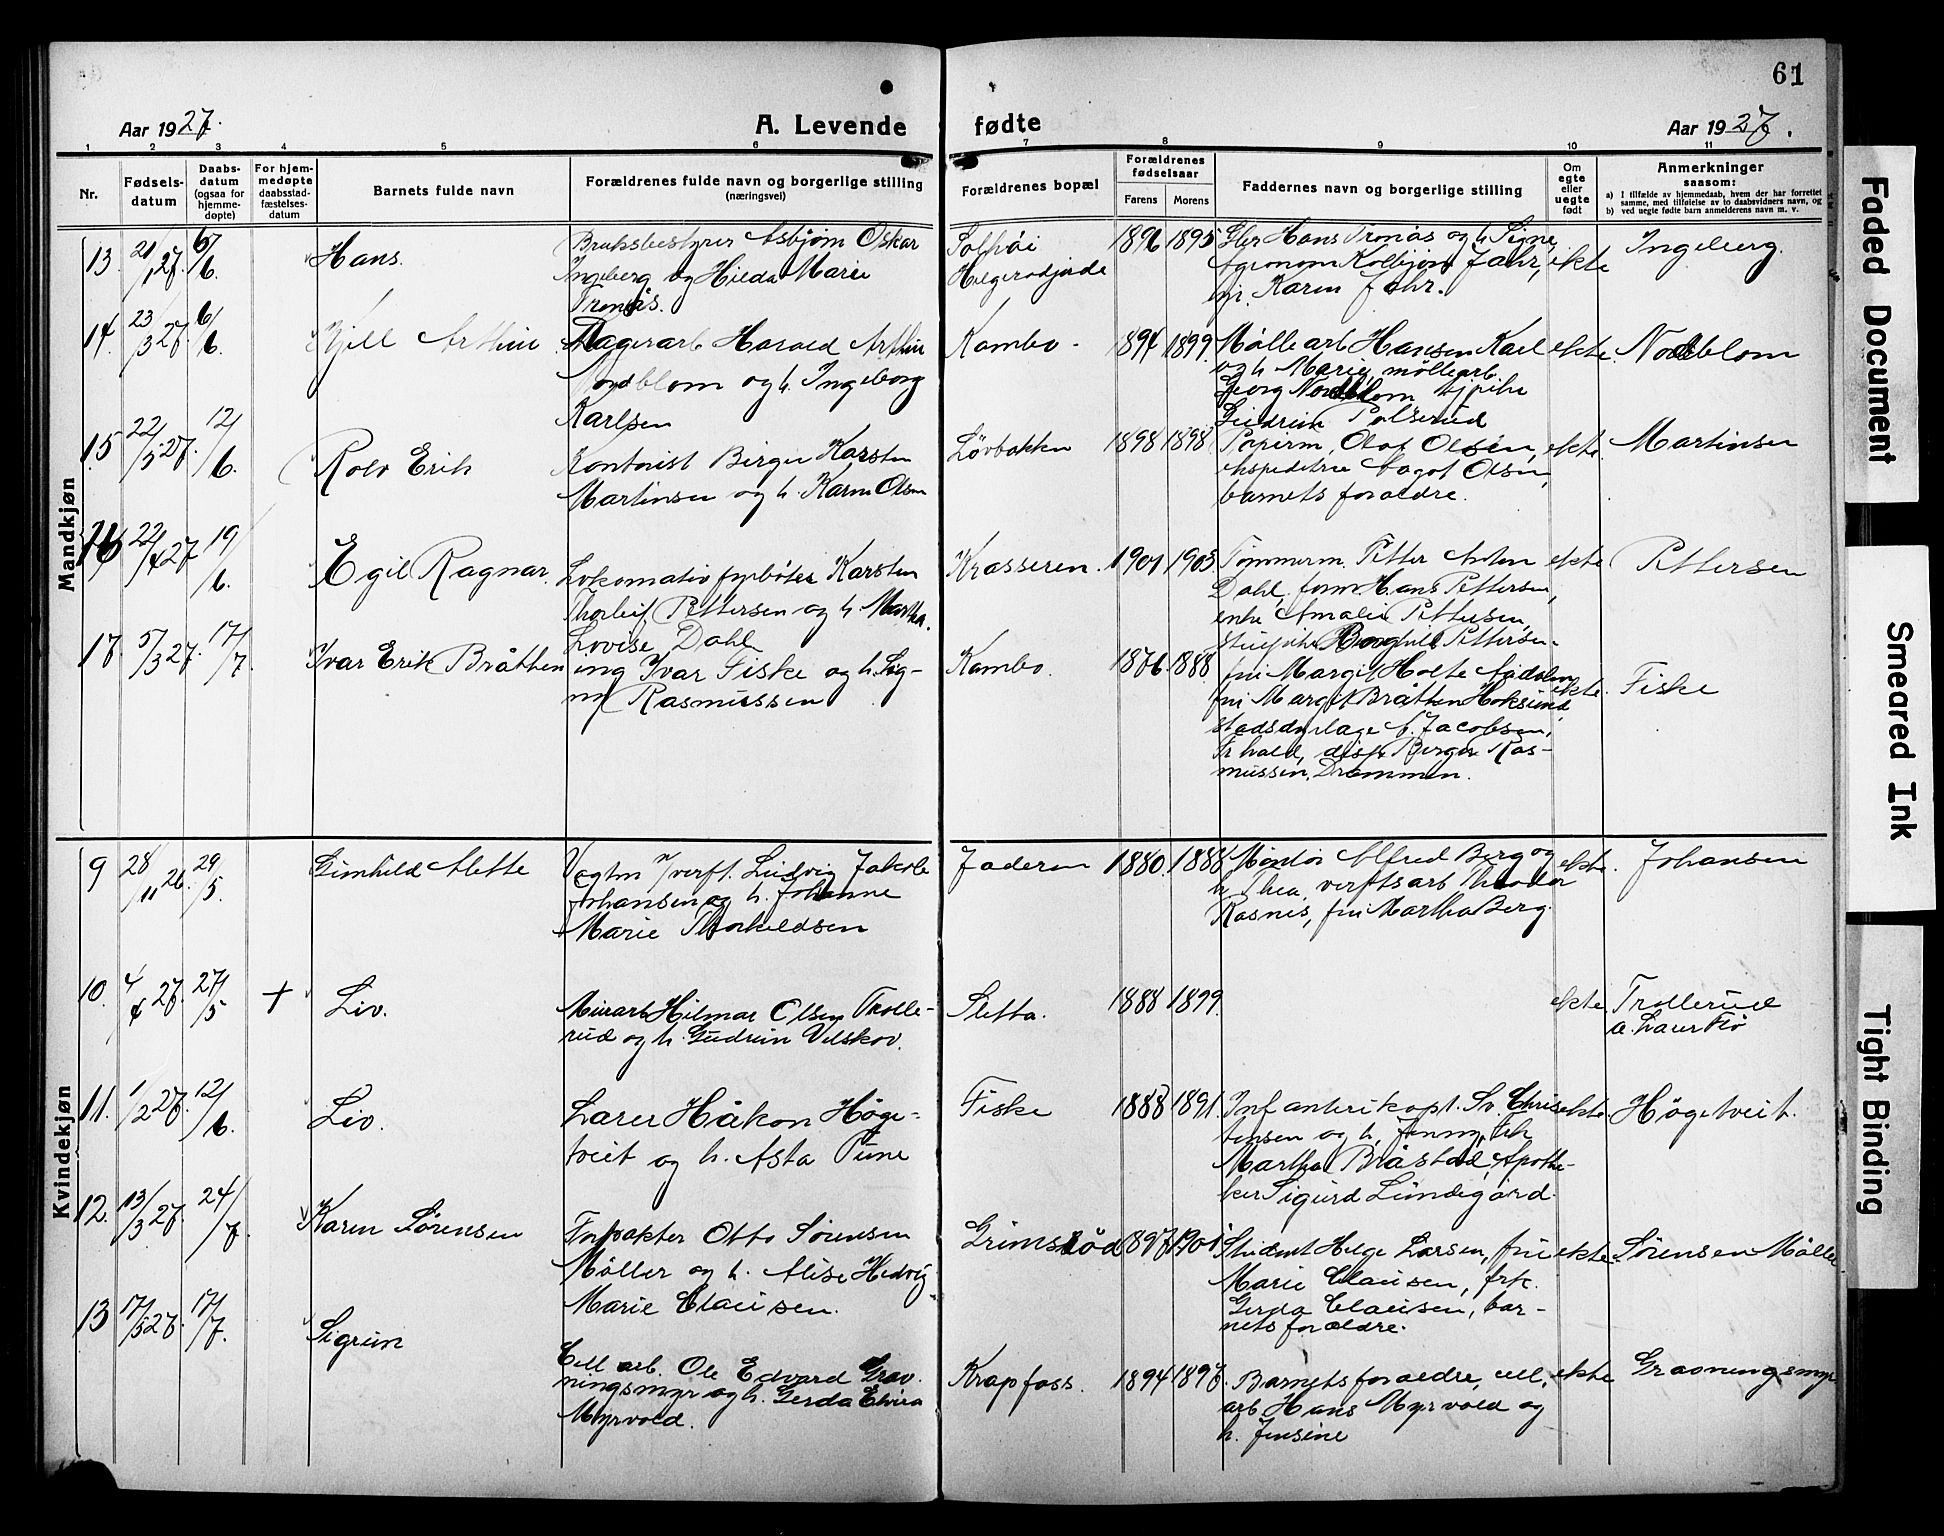 61
Aar 1927.
A. Levende
fødte
Aar 1927.
1 2 3 4 5 6 7 8 9 10 11
Nr.
Fødsels-
datum
Daabs-
datum
(ogsaa for
hjemme-
døpte)
For hjem-
medøpte
daabsstad-
fæstelses-
datum
Barnets fulde navn
Forældrenes fulde navn og borgerlige stilling
(næringsvei)
Forældrenes bopæl
Forældrenes
fødselsaar
Farens
Morens
Faddernes navn og borgerlige stilling
Om
egte
eller
uegte
født
Anmerkninger
saasom:
a) I tilfælde av hjemmedaab, hvem der har forrettet
samme, med tilføielse av to daabsvidners navn, og
b) ved uegte fødte barn anmelderens navn m. v.
Mandkjøn
13. 21/1 27. 6/6. Hans.
Bruksbestyrer Asbjørn Oskar
Ingeberg og Hilda Marie
Tronås.
1896 1895
Gbr Hans Tronås og h. Signe,
Agronom Kolbjørn Jahr,
Karen Jahr.
ekte Ingeberg.
14. 23/3 27. 6/6. Kjell Arthur
Lagerarb Harald Arthur
Nordblom og h. Ingeborg
Karlsen
Kambo - 1894 1899.
Møllearb Hansen Karl
og h Marie, møllearb.
Georg Nordblom
Palserud
ekte. Nordblom
15. 22/5 27. 12/6. Rolv Erik
Kontorist Birger Karsten
Martinsen og h. Karen Olsen
Løvbakken 1898 1898
Papirm. Olaf Olsen,
ekspeditrise Aagot Olsen,
barnets foraeldre.
ekte. Martinsen
16 22/4 27 19/6. Egil Ragnar
Lokomotivfyrbøter Karsten
Thorleif Pettersen og h. Martha
Lovise Dahl
Krosseren. 1901 1903
Tømmerm. Petter Anton
Dahl, form. Hans Pettersen,
enke Amalie Pettersen,
Borghild Pettersen.
ekte Pettersen
17. 5/3 27. 17/7. Ivar Erik Bråthen
ing Ivar Fiske og h. Sig-
ny Rasmussen
Kambo. 1876. 1888.
fru Margit Holte
fru Margit Bråthen Hoksund,
stadsdyrlæge A. Jacobsen,
Fr.hald, disp. Birger Ras-
mussen, Drammen.
ekte. Fiske
Kvindekjøn
9 28/11 26. 29/5. Gunhild Alette
Vegtm v/verft. Ludvig Jakob
Johansen og h. Johanne
Marie Thorkildsen
Jaderen 1880. 1888
Montør Alfred Berg og
h Thea, verftsarb Theodor
Rasnes, fru Martha Berg.
ekte. Johansen
10. 4/4 27. 27/5 + Liv.
Murarb Hilmar Olsen Trolle-
rud og h. Gudrun Velskov.
Sletta. 1888 1899.
ekte. Trollerud
11. 1/2 27. 12/6. Liv.
Lærer Håkon Høge-
tveit og h. Asta Tune
Fiske 1888 1891.
Infanterikapt. Sv. Chris
tensen og h. Jenny, frk
Martha Bråstad, Apothe-
ker Sigurd Lundegård.
ekte. Høgetveit.
12. 13/3 27. 24/7. Karen Sørensen
Forpakter Otto Sørensen
Møller og h. Alise Hedvig
Marie Clausen.
Grimsrød 1897 1901
Student Helge Larsen, fru
Marie Clausen, frk.
Gerda Clausen, bar-
nets foraeldre.
ekte. Sørensen Møller
13 17/5 27. 17/7. Sigrun
Cell arb. Ole Edvard Grav
ningsmyr og h. Gerda Elvira
Myrvold.
Krapfoss. 1894 1897.
Barnets foraeldre, cell.
arb Hans Myrvold og
h. Jensine
ekte Gravningsmyr
Faded Document
Smeared Ink
Tight Binding